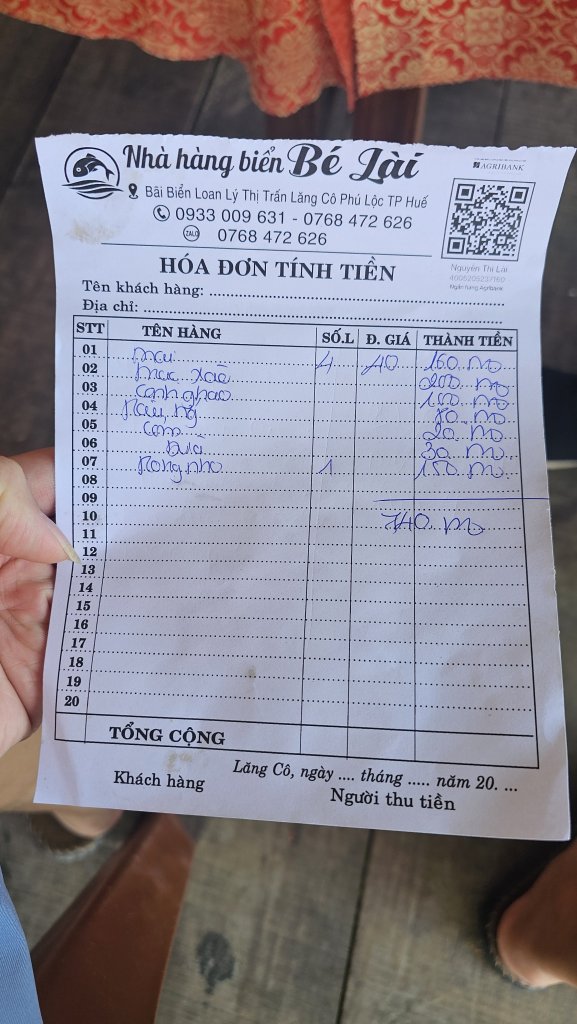 Nhà hàng biển Bé Lài
AGRIBANK
Bãi Biển Loan Lý Thị Trấn Lăng Cô Phú Lộc TP Huế
0933 009 631 - 0768 472 626
ZALO 0768 472 626
Nguyễn Thị Lài
Ngân hàng Agribank
HÓA ĐƠN TÍNH TIỀN
Tên khách hàng:
Địa chỉ:
STT TÊN HÀNG SỐ.L Đ. GIÁ THÀNH TIỀN
01 4 40 160
02 200
03 100
04 80
05 Cơm 20
06 30
07 Rong nho 1 150
08
09
10 740
11
12
13
14
15
16
17
18
19
20
TỔNG CỘNG
Lăng Cô, ngày .... tháng ..... năm 20. ...
Khách hàng Người thu tiền